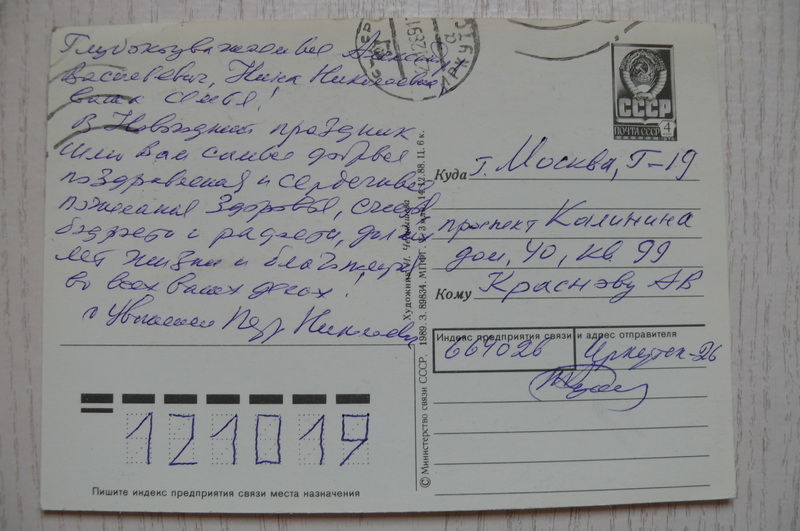 Глубокоуважаемые Алексей
Васильевич, Нина Николаевна
ваша семья!
В Новогодний праздник
шлю Вам самые добрые
поздравления и сердечные
пожелания здоровья, счастья
бодрости и радости, долгих
лет жизни и благополучия
во всех ваших делах!
с Уважением Николаев
СССР
ПОЧТА СССР
4
Куда г. Москва, Г-19
проспект Калинина
дом, 40, кв 99
Кому Краснову АВ
Индекс предприятия связи и адрес отправителя
664026 Иркутск-26
Художник
© Министерство связи СССР. 1989. З. 89834. МПФГ. 14.12.88. П. 6 к.
121019
Пишите индекс предприятия связи места назначения